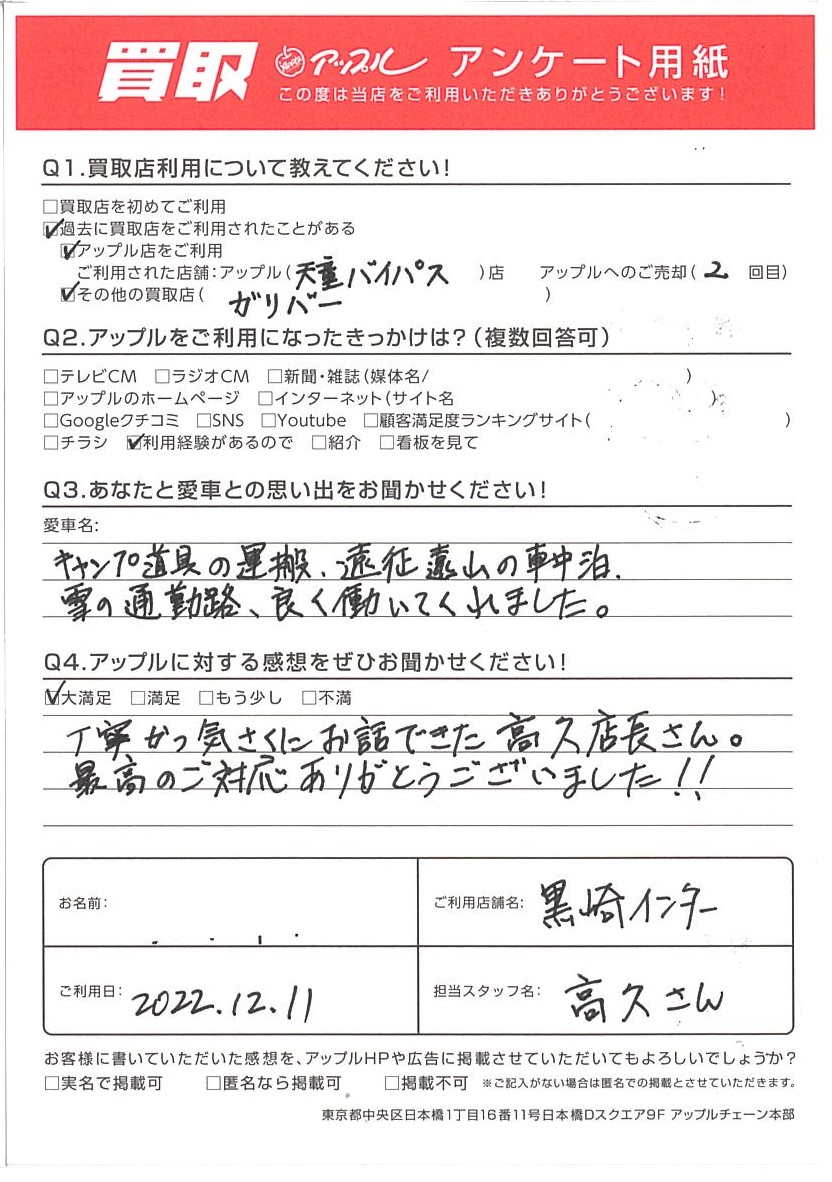 買取 アップル アンケート用紙
この度は当店をご利用いただきありがとうございます!
Q1.買取店利用について教えてください!
□買取店を初めてご利用
☑過去に買取店をご利用されたことがある
☑アップル店をご利用
ご利用された店舗:アップル(天童バイパス)店 アップルへのご売却(2回目)
☑その他の買取店(ガリバー)
Q2.アップルをご利用になったきっかけは?(複数回答可)
□テレビCM □ラジオCM □新聞・雑誌(媒体名/ )
□アップルのホームページ □インターネット(サイト名 )
□Googleクチコミ □SNS □Youtube □顧客満足度ランキングサイト( )
□チラシ ☑利用経験があるので □紹介 □看板を見て
Q3.あなたと愛車との思い出をお聞かせください!
愛車名:
キャンプ道具の運搬、遠征遠山の車中泊、
雪の通勤路、良く働いてくれました。
Q4.アップルに対する感想をぜひお聞かせください!
☑大満足 □満足 □もう少し □不満
丁寧かつ気さくにお話できた高久店長さん。
最高のご対応ありがとうございました!!
お名前:
ご利用店舗名: 黒崎インター
ご利用日: 2022.12.11
担当スタッフ名: 高久さん
お客様に書いていただいた感想を、アップルHPや広告に掲載させていただいてもよろしいでしょうか?
□実名で掲載可 □匿名なら掲載可 □掲載不可 ※ご記入がない場合は匿名での掲載とさせていただきます。
東京都中央区日本橋1丁目16番11号日本橋Dスクエア9F アップルチェーン本部